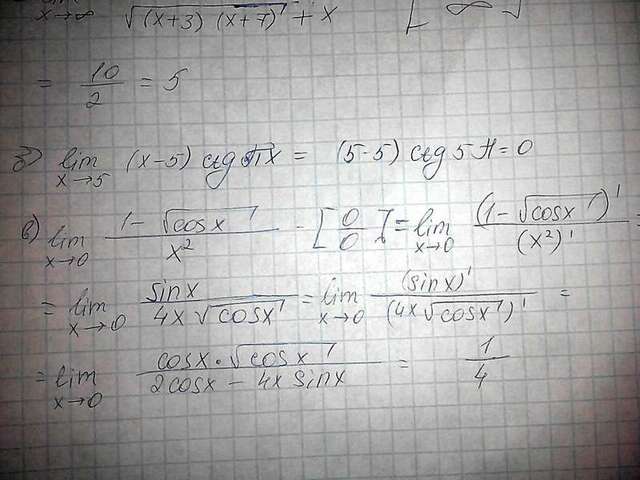 lim x→∞ √((x+3)(x+7)) + x [∞
= 10/2 = 5
б) lim x→5 (x-5) ctg πx = (5-5) ctg 5π = 0
в) lim x→0 (1-√cosx)/x² = [0/0] = lim x→0 (1-√cosx)'/(x²)' =
= lim x→0 sinx/(4x√cosx) = lim x→0 (sinx)'/(4x√cosx)' =
= lim x→0 (cosx·√cosx)/(2cosx - 4x sinx) = 1/4